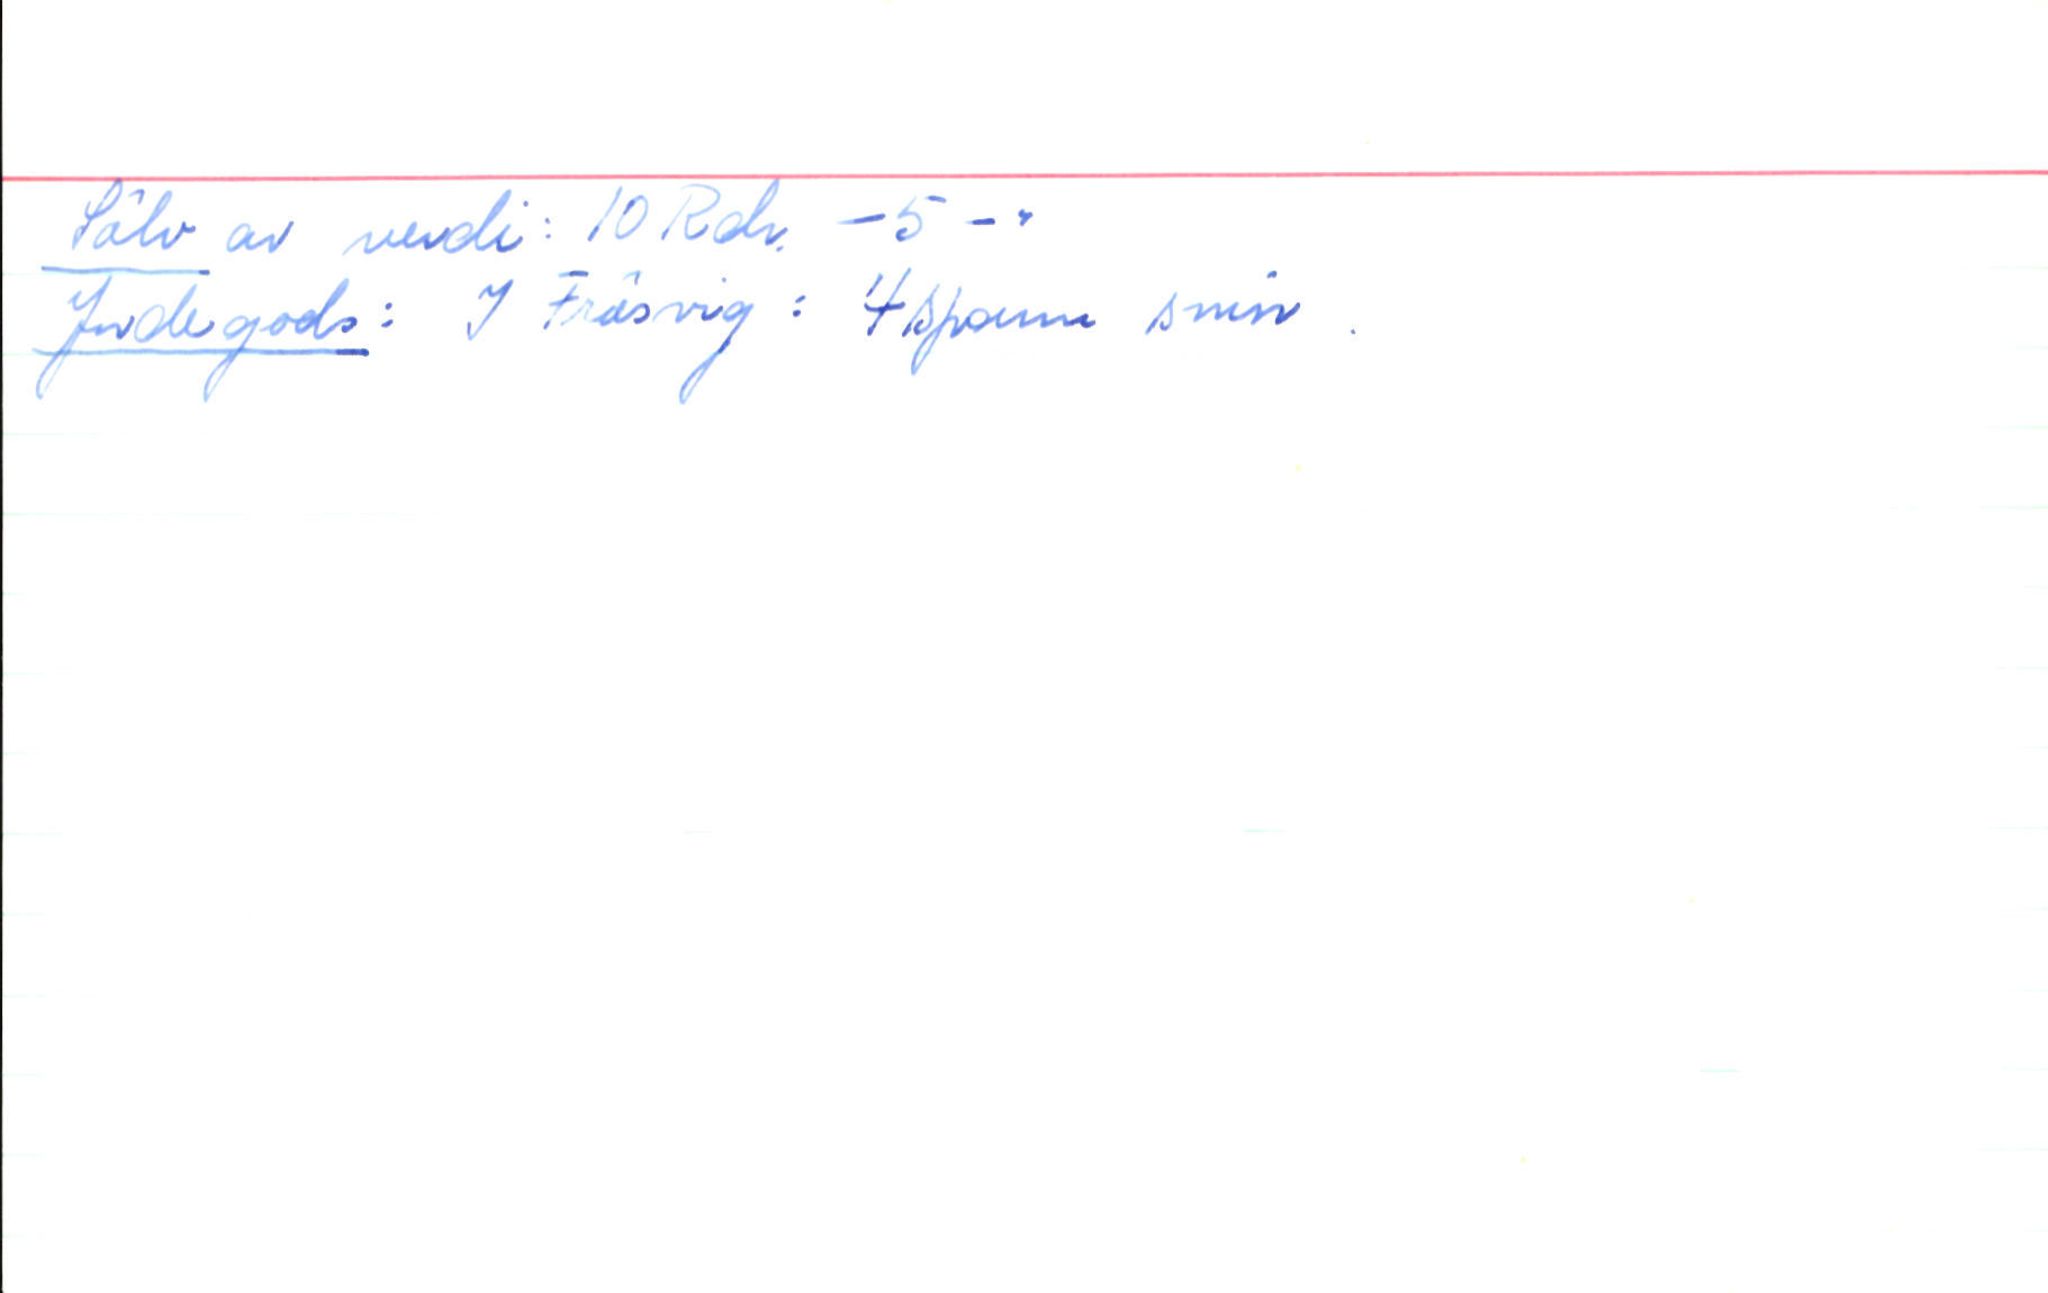 Sölv av verdi: 10 Rdr. – 5 – "
Jordegods: I Fräsvig: 4 spann smör.